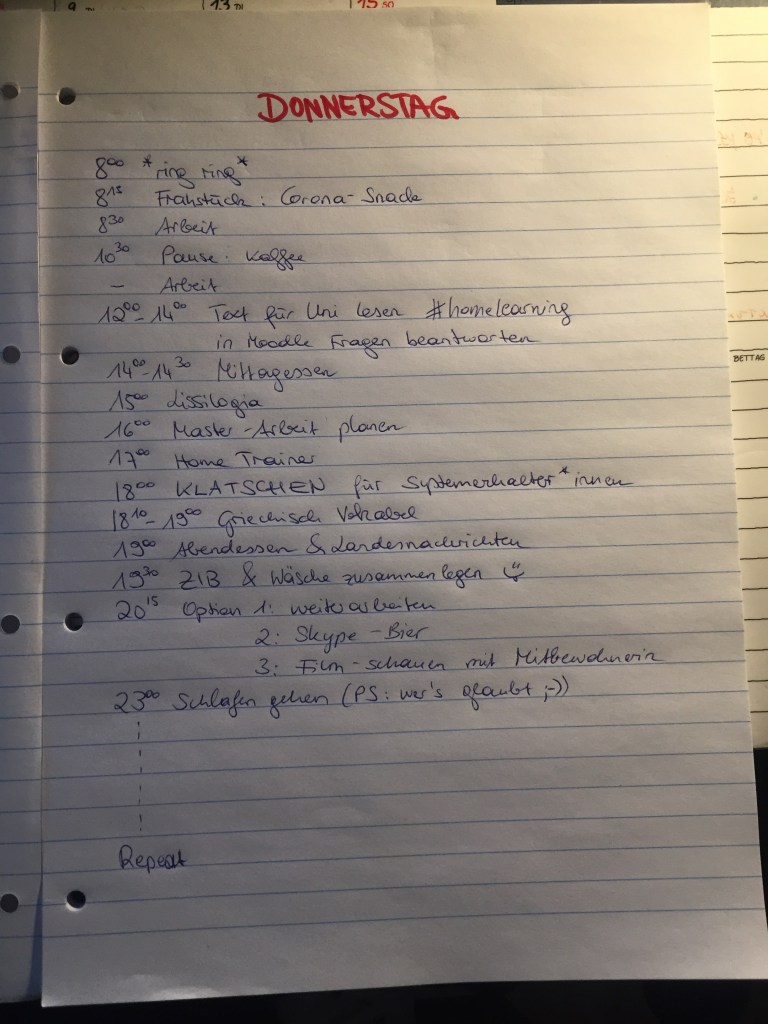 9 TH
13 TH
15 SO
DONNERSTAG
8⁰⁰ *ring ring*
8¹⁵ Frühstück: Corona-Snack
8³⁰ Arbeit
10³⁰ Pause: Kaffee
– Arbeit
12⁰⁰–14⁰⁰ Text für Uni lesen #homelearning
in Moodle Fragen beantworten
14⁰⁰–14³⁰ Mittagessen
15⁰⁰
16⁰⁰ Master-Arbeit planen
17⁰⁰ Home Trainer
18⁰⁰ KLATSCHEN für Systemerhalter*innen
18¹⁰–19⁰⁰ Griechisch Vokabel
19⁰⁰ Abendessen & Landesnachrichten
19³⁰ ZIB & Wäsche zusammenlegen
20¹⁵ Option 1: weiterarbeiten
2: Skype-Bier
3: Film-schauen mit Mitbewohnerin
23⁰⁰ Schlafen gehen (PS: wer's glaubt ;-))
Repeat
BETTAG